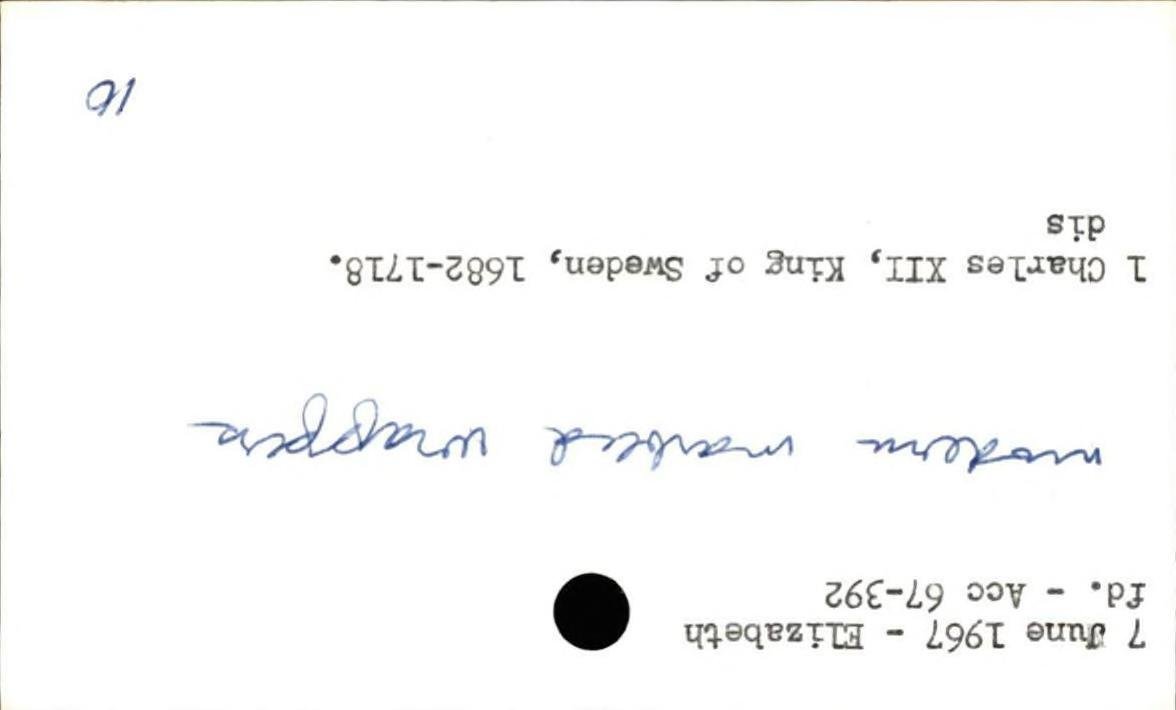 7 June 1967 - Elizabeth
fd. - Acc 67-392
modern marbled wrappers
1 Charles XII, King of Sweden, 1682-1718.
dis